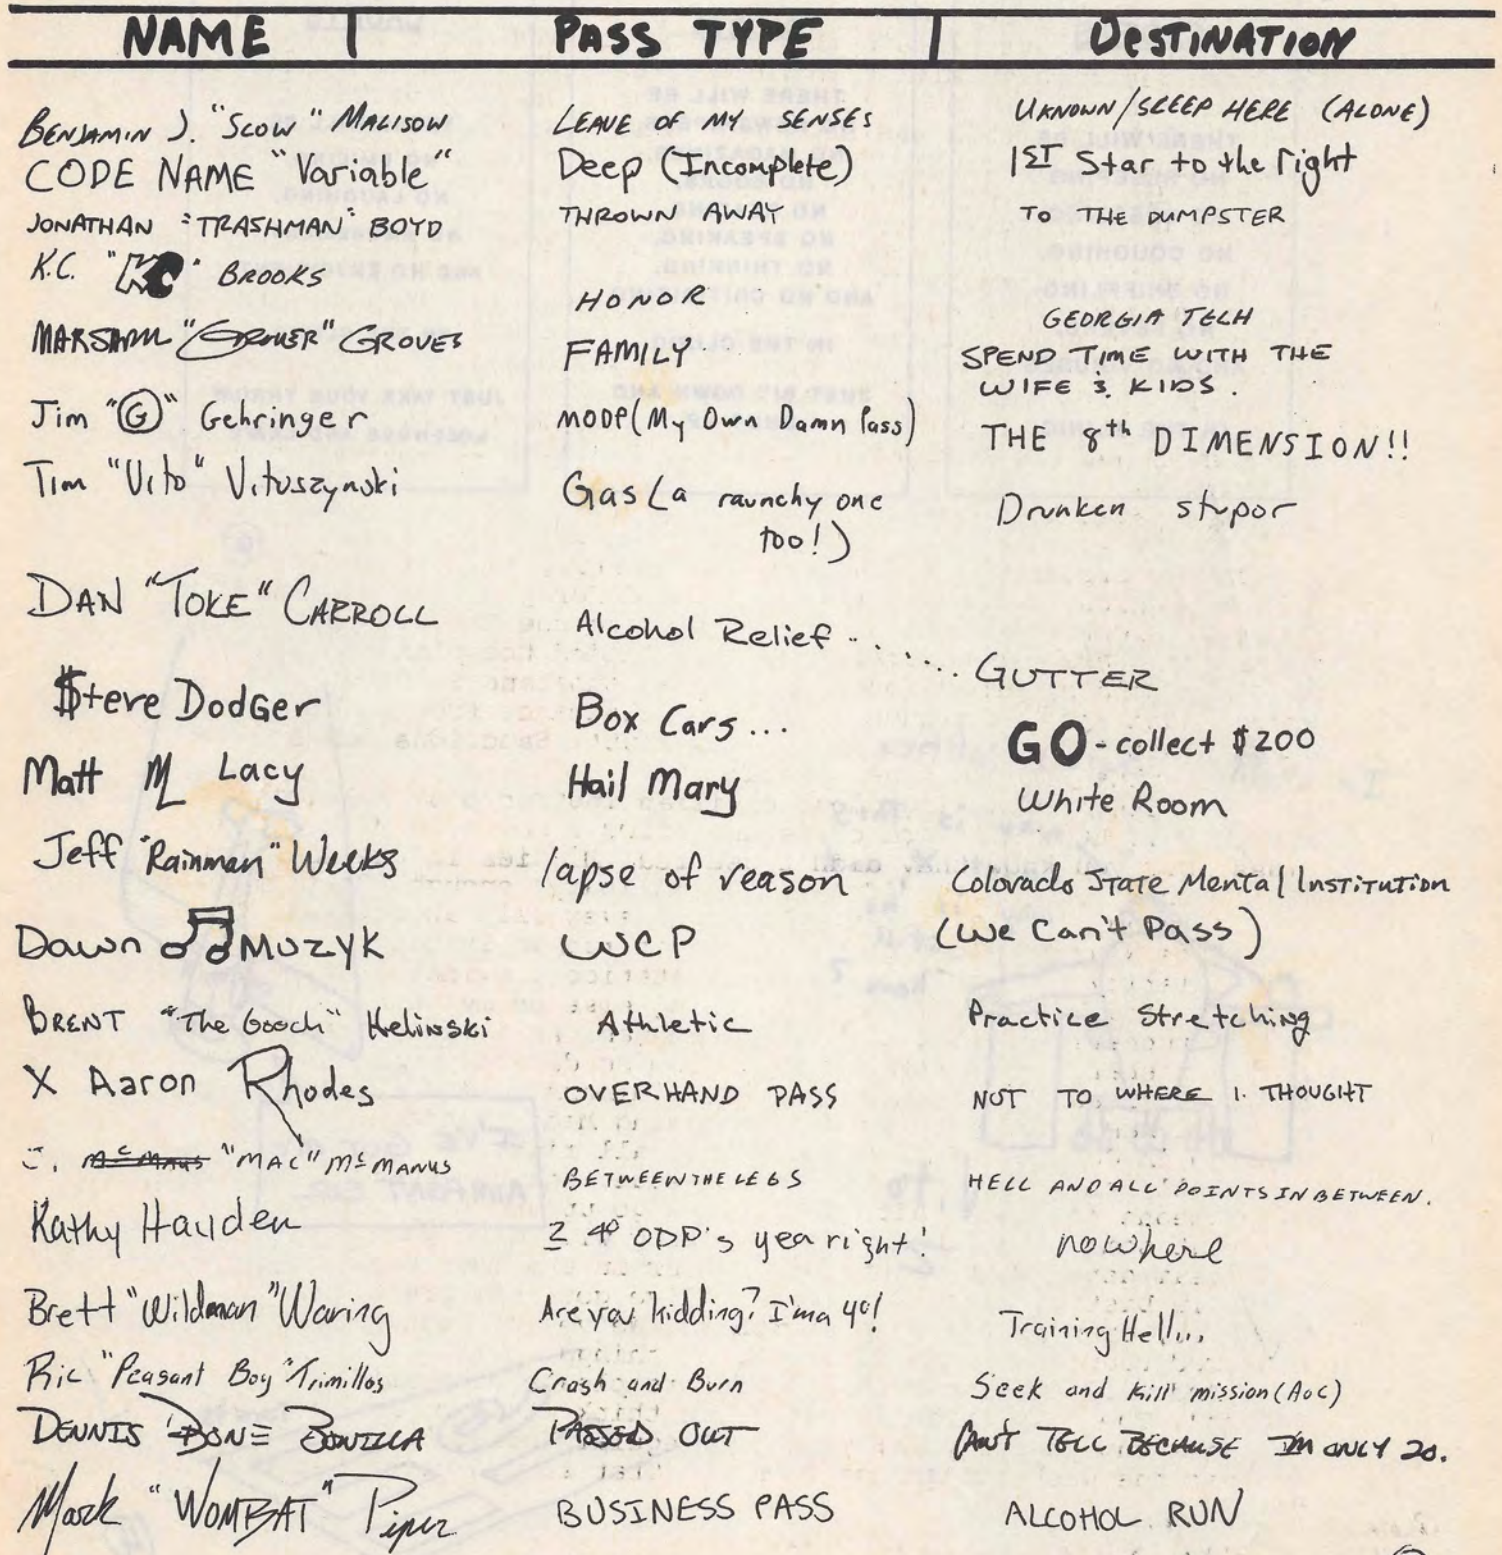 NAME | PASS TYPE | DESTINATION
BENJAMIN J. "SLOW" MALISOW LEAVE OF MY SENSES UKNOWN/SLEEP HERE (ALONE)
CODE NAME "Variable" Deep (Incomplete) 1ST Star to the right
JONATHAN "TRASHMAN" BOYD THROWN AWAY TO THE DUMPSTER
K.C. "KC" BROOKS HONOR GEORGIA TECH
MARSHALL "GROVER" GROVES FAMILY SPEND TIME WITH THE
WIFE & KIDS.
Jim "G" Gehringer MODP (My Own Damn Pass) THE 8th DIMENSION!!
Tim "Vito" Vituszynski Gas (a raunchy one Drunken stupor
too!)
DAN "TOKE" CARROLL Alcohol Relief ....... GUTTER
$teve DodGer Box Cars... GO - collect $200
Matt M Lacy Hail Mary White Room
Jeff "Rainman" Weeks lapse of reason Colorado State Mental Institution
Dawn ♫ MUZYK WCP (We Can't Pass)
BRENT "The Gooch" Helinski Athletic Practice Stretching
X Aaron Rhodes OVERHAND PASS NOT TO WHERE I THOUGHT
J. McManus "MAC" McMANUS BETWEEN THE LEGS HELL AND ALL POINTS IN BETWEEN.
Kathy Hayden 2 4° ODP's yea right! nowhere
Brett "Wildman" Waring Are you kidding? I'm a 4°! Training Hell...
Ric "Peasant Boy" Trimillos Crash and Burn Seek and Kill mission (AOC)
DENNIS "BONE" BONILLA PASSED OUT CAN'T TELL BECAUSE IM ONLY 20.
Mark "WOMBAT" Piper BUSINESS PASS ALCOHOL RUN